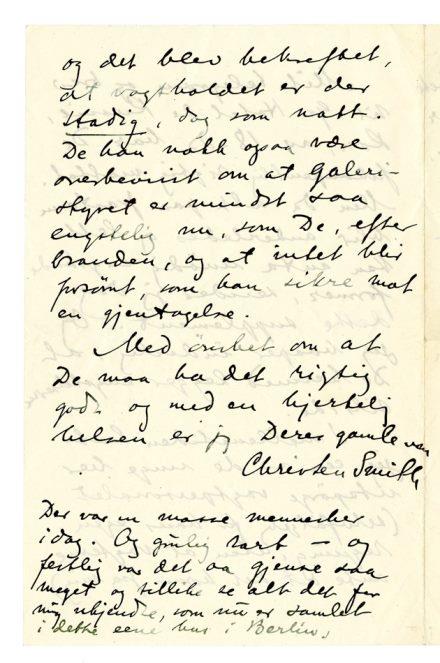 og det blev bekræftet,
at vagtholdet er der
stadig, dag som natt.
De kan nokk ogsaa være
overbevist om at Galeri-
styret er mindst saa
engstelig nu, som De, efter
branden, og at intet blir
forsømt, som kan sikre mot
en gjentagelse.
Med ønsket om at
De maa ha det rigtig
godt og med en hjertelig
hilsen er jeg Deres gamle ven
Christen Smith
Der var en masse mennesker
idag. Og rart — og
festlig var det aa gjense saa
meget og tillike se alt det for
mig ukjendte, som nu er samlet
i dette ene hus i Berlin.